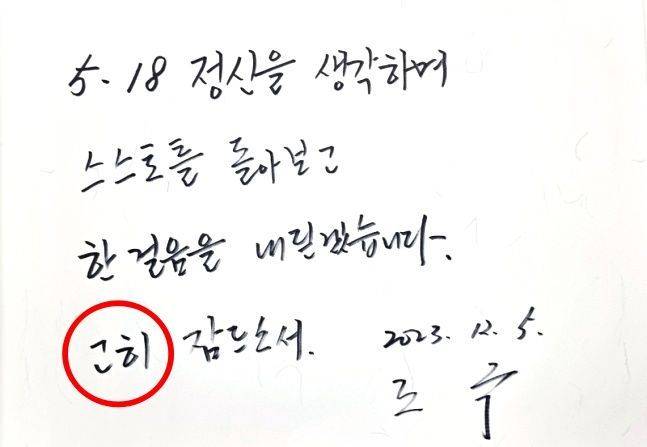 5·18 정신을 생각하며
스스로를 돌아보고
한 걸음을 내딛겠습니다.
고히 잠드소서. 2023. 12. 5.
조 국